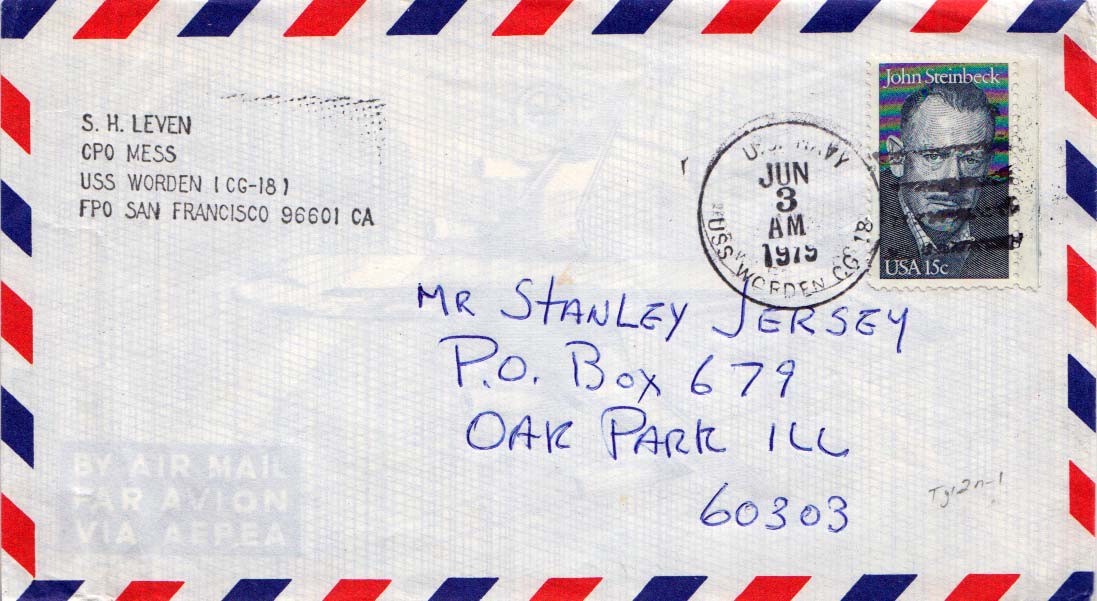 S. H. LEVEN
CPO MESS
USS WORDEN (CG-18)
FPO SAN FRANCISCO 96601 CA
U.S. NAVY
JUN
3
AM
1979
USS WORDEN CG 18
John Steinbeck
USA 15c
MR STANLEY JERSEY
P.O. BOX 679
OAK PARK ILL
60303
BY AIR MAIL
PAR AVION
VIA AEREA